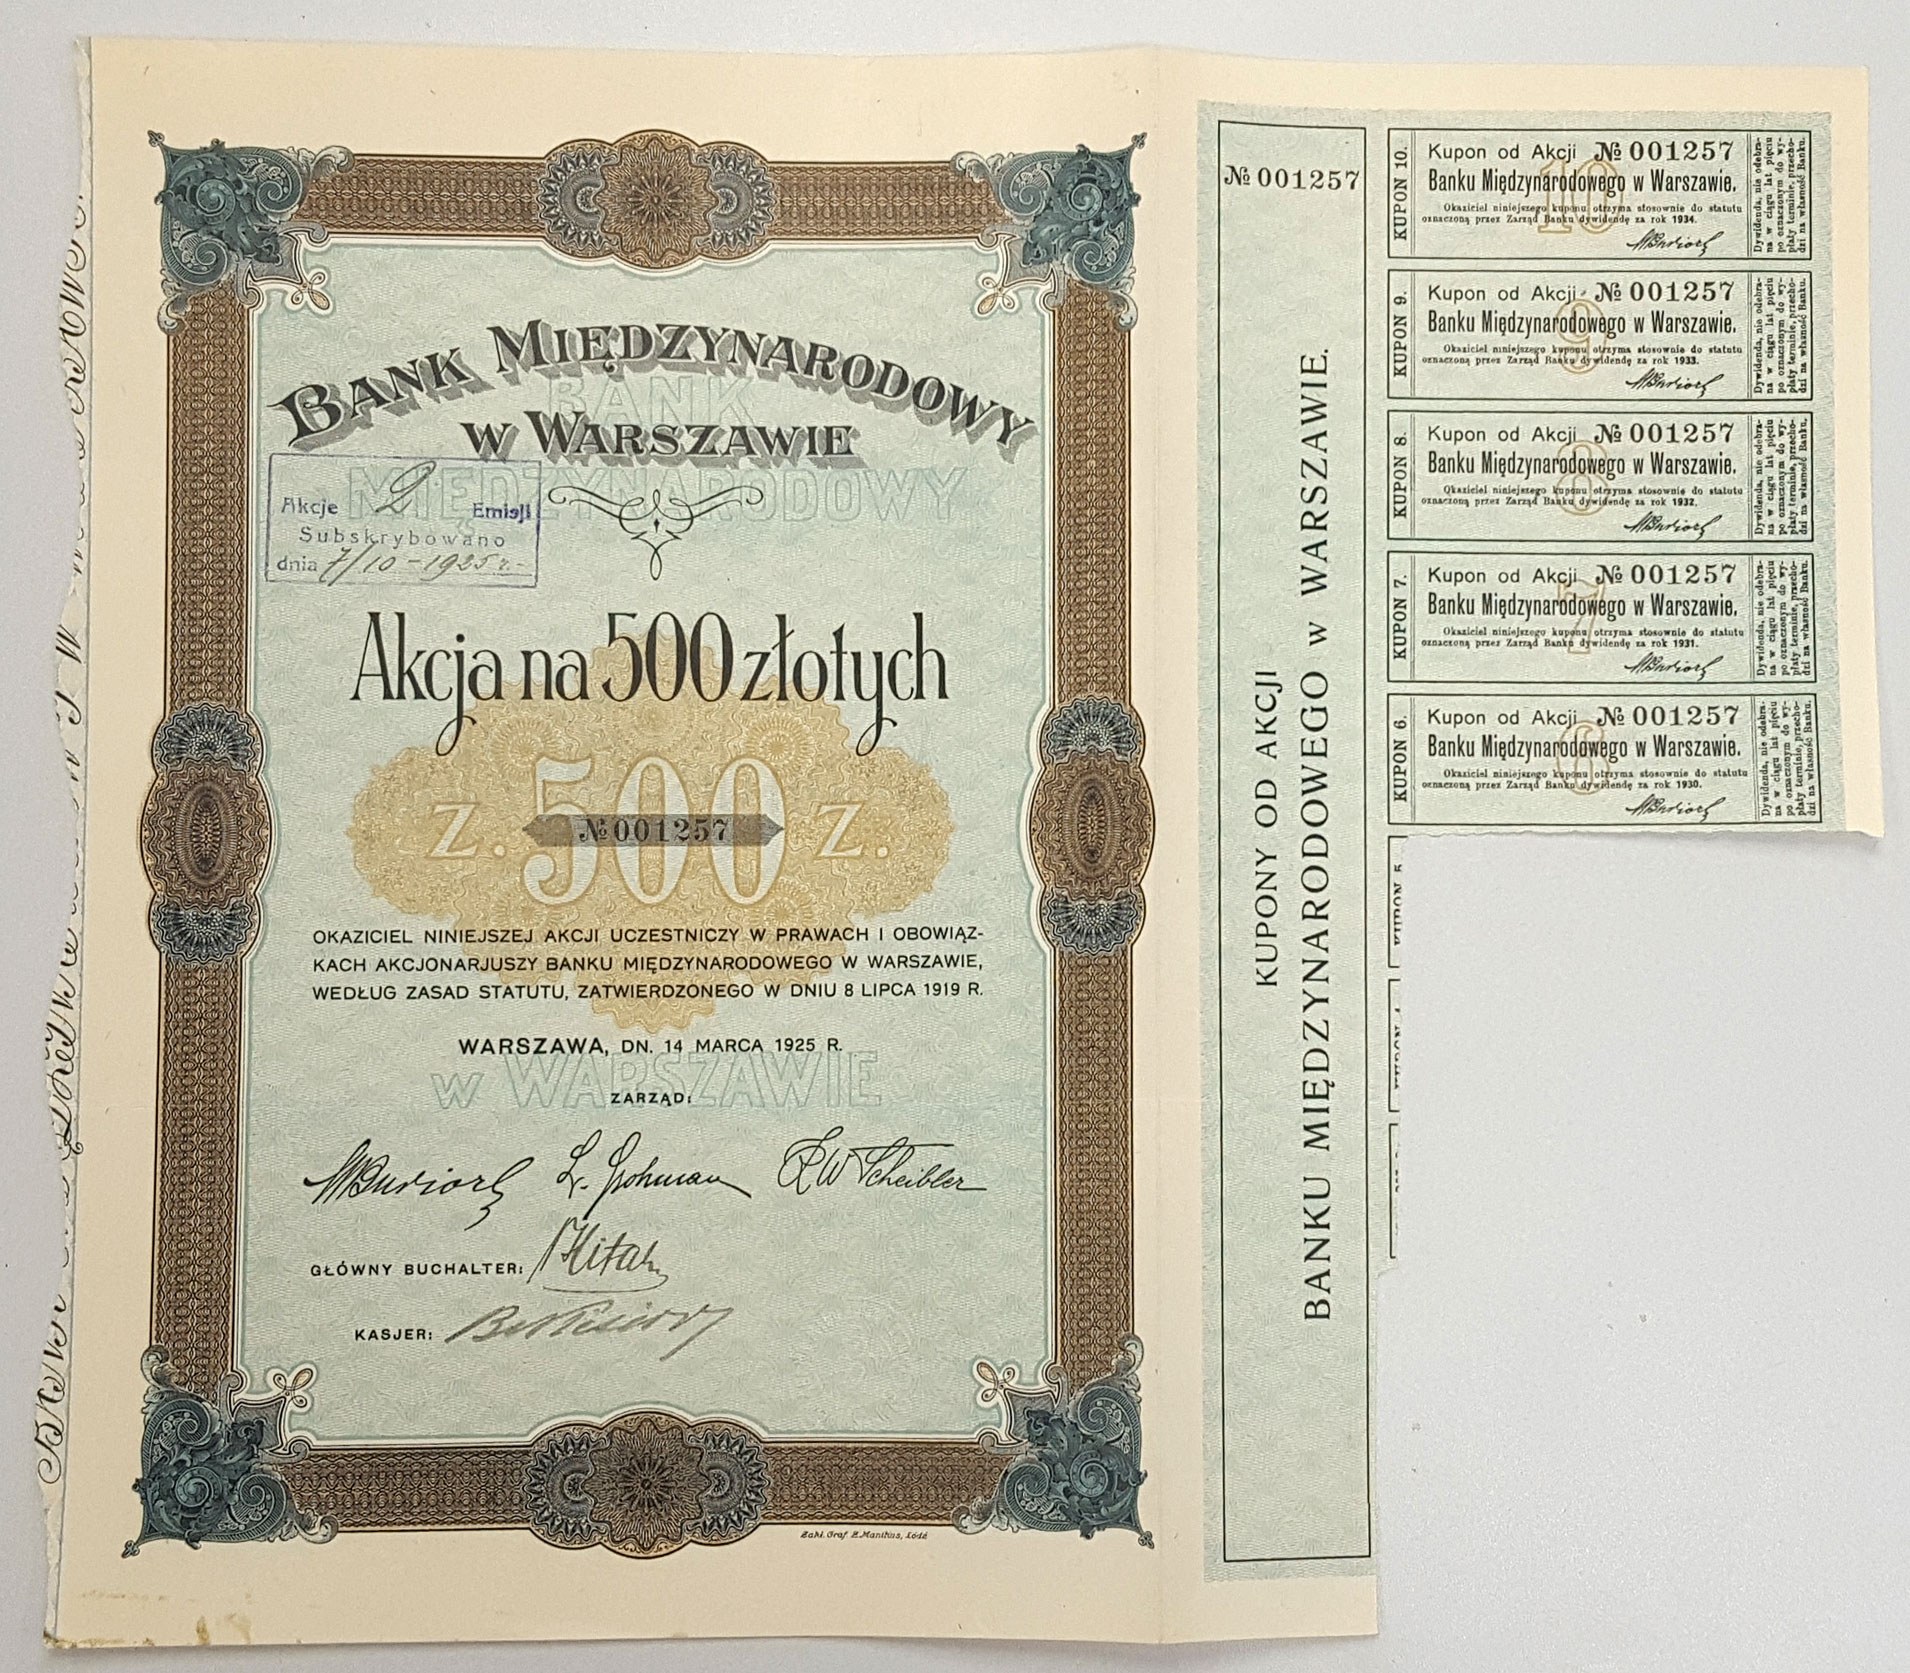 BANK MIĘDZYNARODOWY
W WARSZAWIE
BANK
MIĘDZYNARODOWY
Akcje 2 Emisji
Subskrybowano
dnia 7/10-1925 r.-
Akcja na 500 złotych
Z. 500 Z.
№ 001257
OKAZICIEL NINIEJSZEJ AKCJI UCZESTNICZY W PRAWACH I OBOWIĄZ-
KACH AKCJONARJUSZY BANKU MIĘDZYNARODOWEGO W WARSZAWIE,
WEDŁUG ZASAD STATUTU, ZATWIERDZONEGO W DNIU 8 LIPCA 1919 R.
WARSZAWA, DN. 14 MARCA 1925 R.
W WARSZAWIE
ZARZĄD:
GŁÓWNY BUCHALTER:
KASJER:
Zakł. Graf. B. Manitius, Łódź
№ 001257
KUPONY OD AKCJI
BANKU MIĘDZYNARODOWEGO W WARSZAWIE.
KUPON 10.
10
Kupon od Akcji № 001257
Banku Międzynarodowego w Warszawie.
Okaziciel niniejszego kuponu otrzyma stosownie do statutu
oznaczoną przez Zarząd Banku dywidendę za rok 1934.
Dywidenda, nie odebra-
na w ciągu lat pięciu
po oznaczonym do wy-
płaty terminie, przecho-
dzi na własność Banku.
KUPON 9.
9
Kupon od Akcji № 001257
Banku Międzynarodowego w Warszawie.
Okaziciel niniejszego kuponu otrzyma stosownie do statutu
oznaczoną przez Zarząd Banku dywidendę za rok 1933.
Dywidenda, nie odebra-
na w ciągu lat pięciu
po oznaczonym do wy-
płaty terminie, przecho-
dzi na własność Banku.
KUPON 8.
8
Kupon od Akcji № 001257
Banku Międzynarodowego w Warszawie.
Okaziciel niniejszego kuponu otrzyma stosownie do statutu
oznaczoną przez Zarząd Banku dywidendę za rok 1932.
Dywidenda, nie odebra-
na w ciągu lat pięciu
po oznaczonym do wy-
płaty terminie, przecho-
dzi na własność Banku.
KUPON 7.
7
Kupon od Akcji № 001257
Banku Międzynarodowego w Warszawie.
Okaziciel niniejszego kuponu otrzyma stosownie do statutu
oznaczoną przez Zarząd Banku dywidendę za rok 1931.
Dywidenda, nie odebra-
na w ciągu lat pięciu
po oznaczonym do wy-
płaty terminie, przecho-
dzi na własność Banku.
KUPON 6.
6
Kupon od Akcji № 001257
Banku Międzynarodowego w Warszawie.
Okaziciel niniejszego kuponu otrzyma stosownie do statutu
oznaczoną przez Zarząd Banku dywidendę za rok 1930.
Dywidenda, nie odebra-
na w ciągu lat pięciu
po oznaczonym do wy-
płaty terminie, przecho-
dzi na własność Banku.